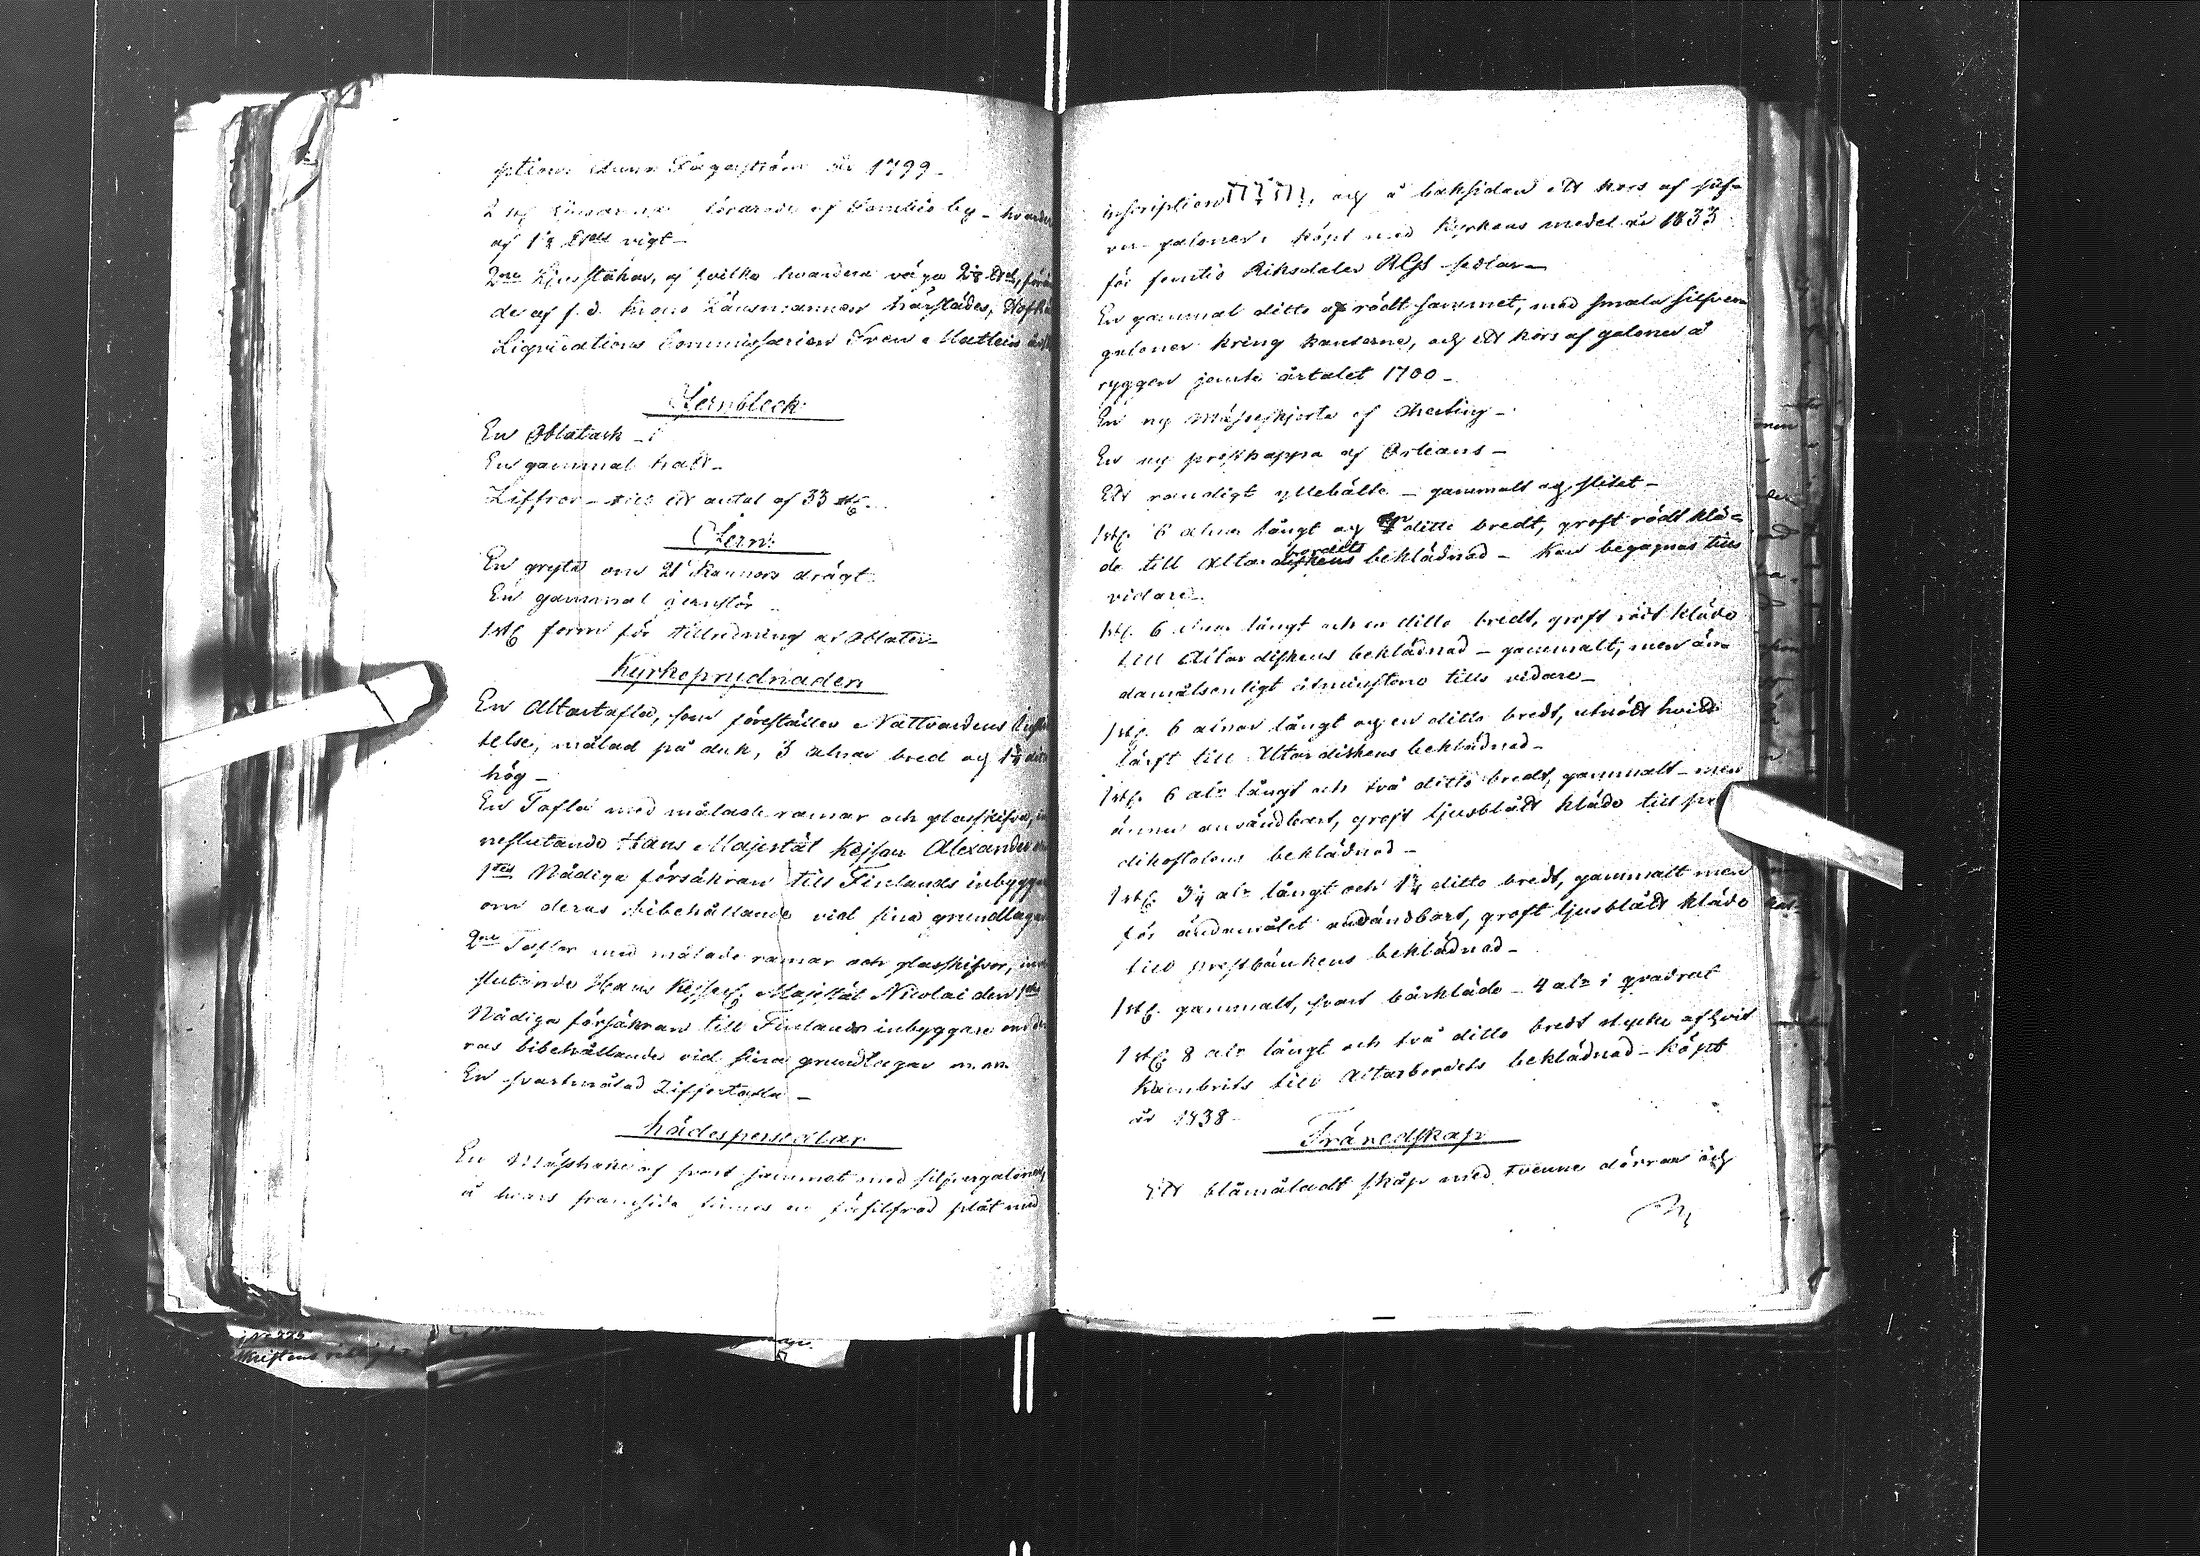 ption: Anna Fagerström år 1799_
2 af
af 1½ vigt_
2ne Ljusstakar, af hvilka hvardera väga
de af f. d. Krono Länsmannen härstädes,
Liquidations Commissarien Sven Matlein
Jernbleck
En Oblatask _
En gammal tratt_
Ziffror _ till ett antal af 33 st.
Jern:
En gryta om 21 Kannors drägt
En gammal jernstör _
1 st. form för tillredning af Oblater_
Kyrkoprydnader
En Altartafla, som föreställer Nattvardens
telse, målad på duk, 3 alnar bred och
hög_
En Tafla med målade ramar och glasskifva,
neslutande Hans Majestät Kejsar Alexander
1stes Nådiga försäkran till Finlands inbyggare
om deras bibehållande vid sina grundlagar
2ne Taflor med målade ramar och glasskifvor, in
slutande Hans Kejserl. Majestät Nicolai den 1stes
Nådiga försäkran till Finlands inbyggare om de
ras bibehållande vid sina grundlagar m.m.
En svartmålad Ziffertafla _
Klädespersedlar
En Mässhake af svart sammet med silfvergaloner,
å hvars framsida finnes en försilfrad plåt med
inscription , och å baksidan ett kors af silf-
ver galoner, köpt med Kyrkans medel år 1833
för femtio Riksdaler RGs sedlar_
En gammal ditto af rödt sammet, med smala silfver
galoner kring kanterne, och ett kors af galoner å
ryggen jemte årtalet 1700_
En ny Mässeskjorta af Cherting_
En ny prestkappa af Orleans_
Ett randigt yllebälte _ gammalt och slitet_
1 st. 6 alnar långt och en ditto bredt, groft rödt klä-
de till Altarbordets beklädnad _ kan begagnas tills
vidare_
1 st. 6 alnar långt och en ditto bredt, groft rödt kläde
till Altardiskens beklädnad _ gammalt, men än
damålsenligt åtminstone tills vidare_
1 st. 6 alnar långt och en ditto bredt, utnött hvitt
lärft till Altardiskens beklädnad_
1 st. 6 alr långt och två ditto bredt, gammalt _ men
ännu användbart, groft ljusblått kläde till pre
dikostolens beklädnad _
1 st. 3¼ alr långt och 1¼ ditto bredt, gammalt men
för ändamålet användbart, groft ljusblått kläde
till prestbänkens beklädnad_
1 st. gammalt, svart bårkläde _ 4 alr i qvadrat
1 st. 8 alr långt och två ditto bredt stycke af hvit
Kambrits till Altarbordets beklädnad _ köpt
år 1838
Träredskap
Ett blåmåladt skåp med tvenne dörrar och